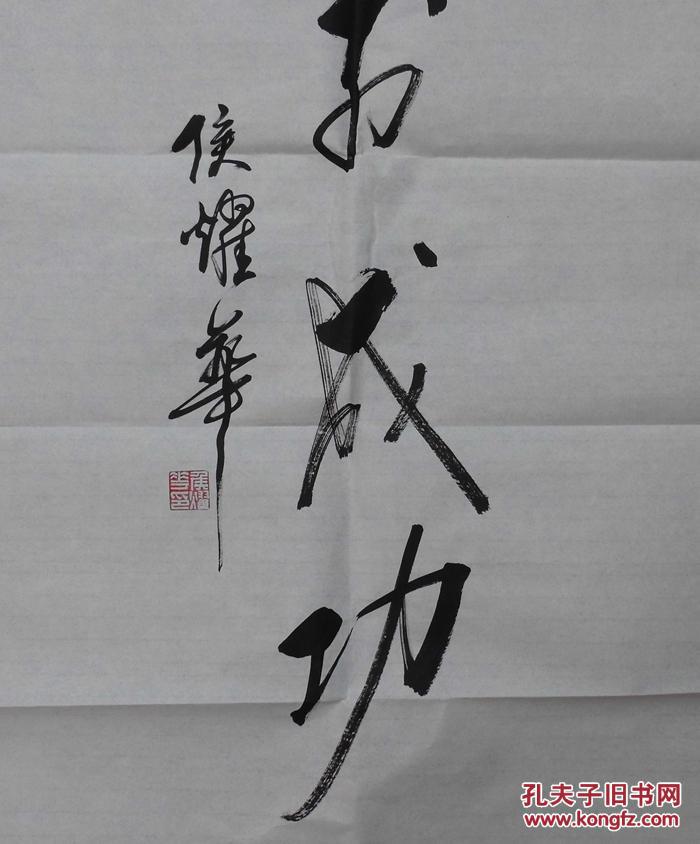 成功
侯燿華
侯燿
華印
孔夫子旧书网
www.kongfz.com